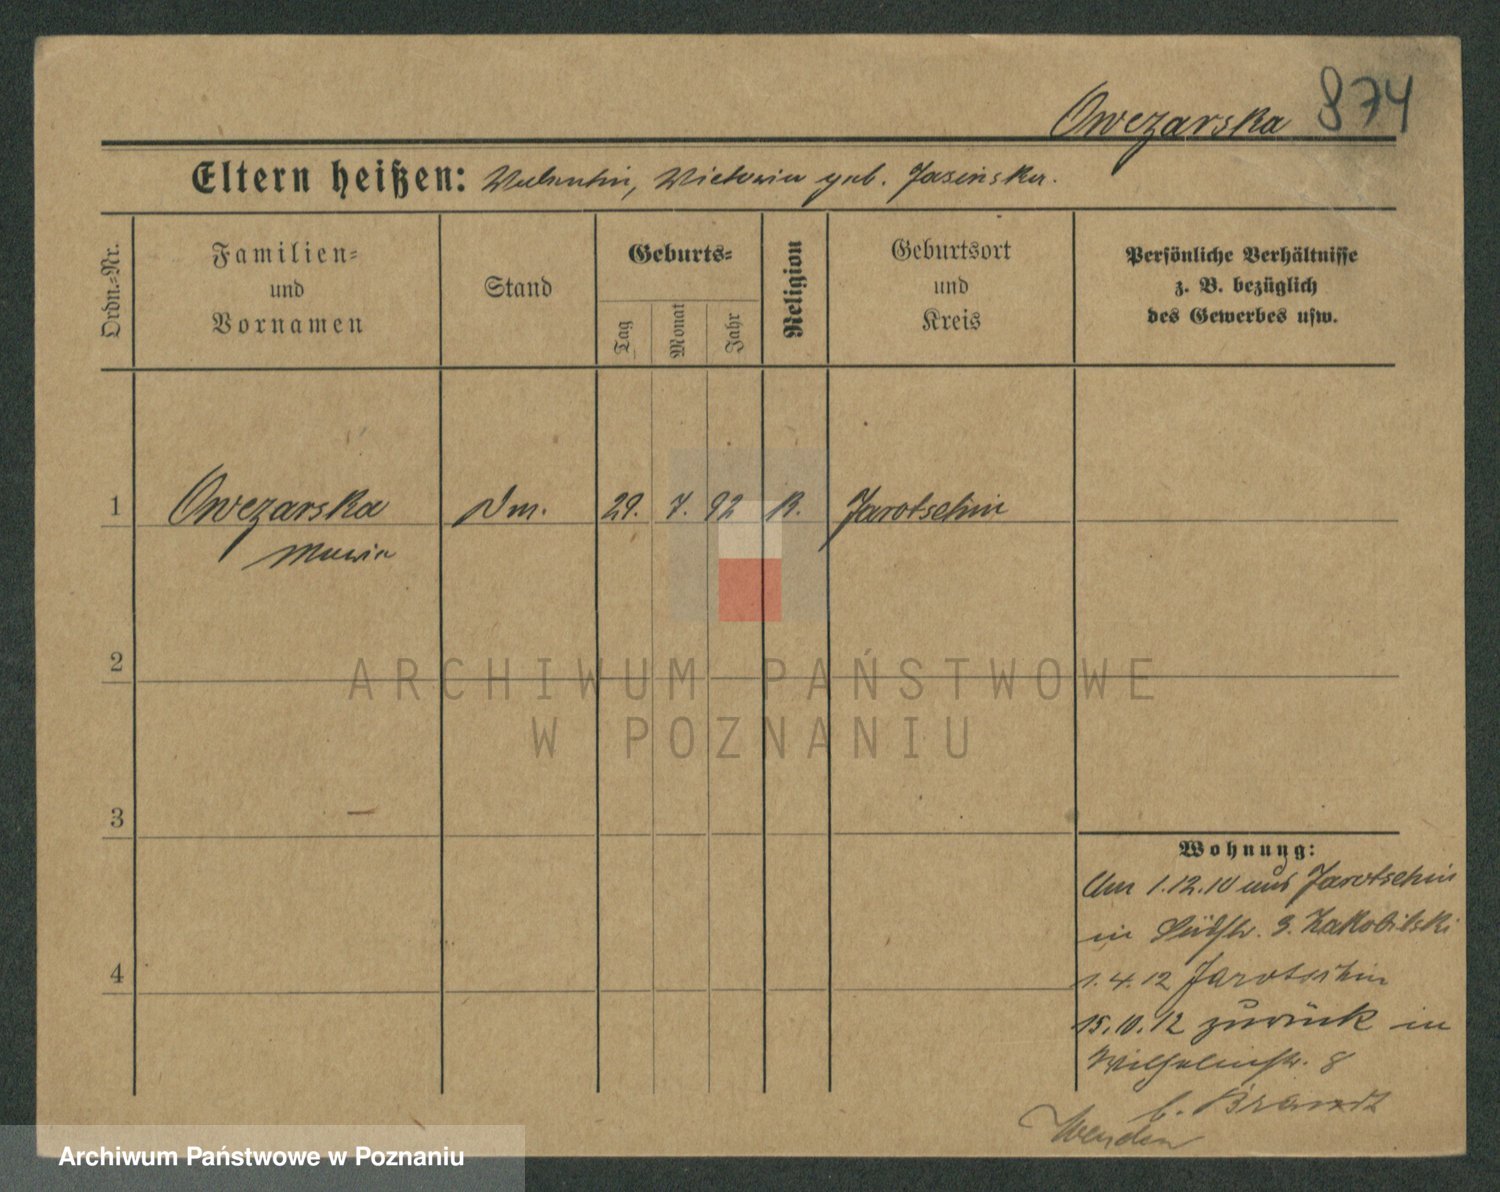 Owczarska 874
Eltern heißen: Valentin, Victoria geb. Jasinska.
Ordn.-Nr.
Familien-
und
Vornamen
Stand
Geburts-
Tag
Monat
Jahr
Religion
Geburtsort
und
Kreis
Persönliche Verhältnisse
z. B. bezüglich
des Gewerbes usw.
1 Owczarska Dm. 29. 7. 92 K. Jarotschin
Maria
2
3
4
ARCHIWUM PAŃSTWOWE
W POZNANIU
Wohnung:
Am 1.12.10 aus Jarotschin
in Südstr. 3. Zakobilski
1.4.12 Jarotschin
15.10.12 zurück in
Wilhelmstr. 8
b. Brandt
Archiwum Państwowe w Poznaniu